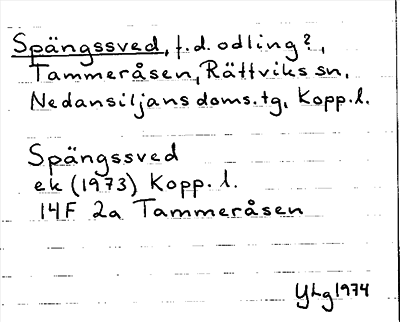 Spängssved, f.d. odling?,
Tammeråsen, Rättviks sn,
Nedansiljans doms.tg, Kopp.l.
Spängssved
ek (1973) Kopp. l.
14F 2a Tammeråsen
YLg 1974